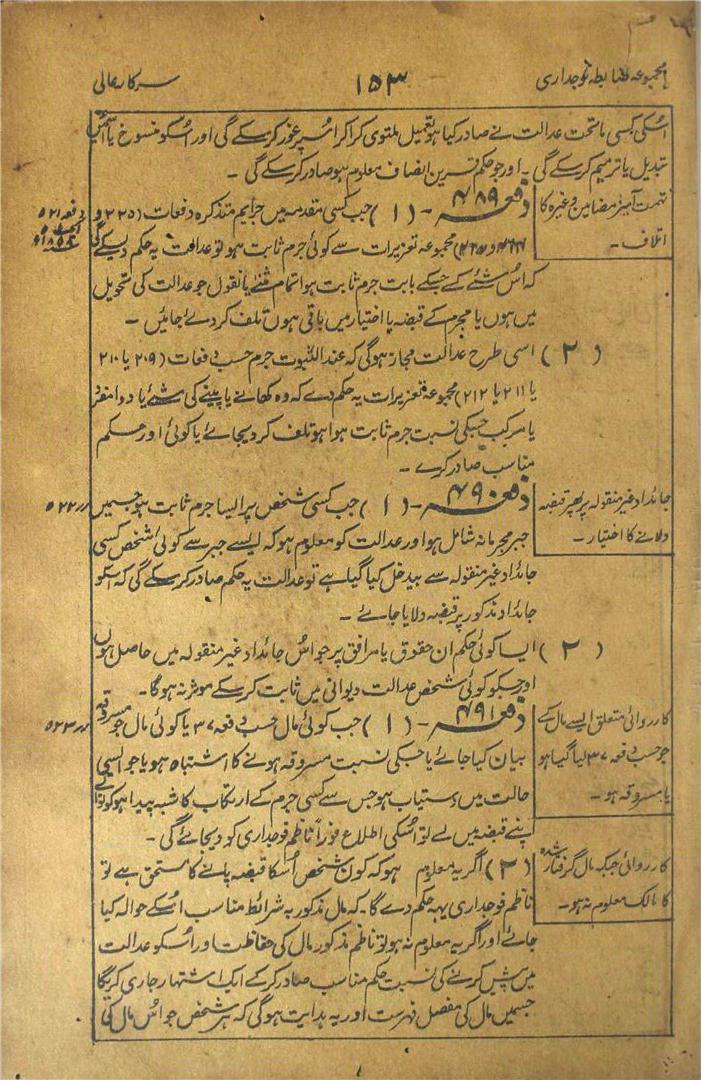 مجموعہ ضابطہ فوجداری
۱۵۳
سرکار عالی
اسکی کسی ماتحت عدالت نے صادر کیا ہو تعمیل ملتوی کرا کر اسپر غور کر سکے گی اور اسکو منسوخ یا اسمیں
تبدیل یا ترمیم کر سکے گی ۔ اور جو حکم قرین انصاف معلوم ہو صادر کر سکے گی ۔
تہمت آمیز مضامین وغیرہ کا
اتلاف ۔
دفعہ ۴۸۹ ۔ (۱) جب کسی مقدمہ میں جرایم متذکرہ دفعات (۲۲۵ و
دفعہ ۵۲۱
مجموعہ تعزیرات سے کوئی جرم ثابت ہو تو عدالت یہ حکم دیسکے گی
کہ اُس شئے کے جسکے بابت جرم ثابت ہوا تمام مثنے یا نقول جو عدالت کی تحویل
میں ہوں یا مجرم کے قبضہ یا اختیار میں باقی ہوں تلف کر دئے جائیں ۔
(۲) اسی طرح عدالت مجاز ہو گی کہ عند الثبوت جرم حسب دفعات (۲۰۹ یا ۲۱۰
یا ۲۱۱ یا ۲۱۲) مجموعہ تعزیرات یہ حکم دے کہ وہ کھانے یا پینے کی شئے یا دوا مفرد
یا مرکب جسکی نسبت جرم ثابت ہوا ہو تلف کر دیجائے یا کوئی اور حکم
مناسب صادر کرے ۔
جائداد غیر منقولہ پر پھر قبضہ
دلانے کا اختیار ۔
دفعہ ۴۹۰ ۔ (۱) جب کسی شخص پر ایسا جرم ثابت ہو جسمیں
〃 ۵۲۲
جبر مجرمانہ شامل ہو اور عدالت کو معلوم ہو کہ ایسے جبر سے کوئی شخص کسی
جائداد غیر منقولہ سے بیدخل کیا گیا ہے تو عدالت یہ حکم صادر کر سکے گی کہ اسکو
جائداد مذکور پر قبضہ دلایا جائے ۔
(۲) ایسا کوئی حکم ان حقوق یا مرافق پر جو اُس جائداد غیر منقولہ میں حاصل ہوں
اور جسکو کوئی شخص عدالت دیوانی میں ثابت کر سکے موثر نہ ہوگا ۔
کارروائی متعلق ایسے مال کے
جو حسب دفعہ ۳۷ لیا گیا ہو
یا مسروقہ ہو ۔
دفعہ ۴۹۱ ۔ (۱) جب کوئی مال حسب دفعہ ۳۷ یا کوئی مال جو مسروقہ
〃 ۵۲۳
بیان کیا جائے یا جسکی نسبت مسروقہ ہونے کا اشتباہ ہو یا جو ایسی
حالت میں دستیاب ہو جس سے کسی جرم کے ارتکاب کا شبہ پیدا ہو کوتوالی
اپنے قبضہ میں لے تو اسکی اطلاع فوراً ناظم فوجداری کو دیجائے گی ۔
کارروائی جبکہ مال گرفتار شدہ
کا مالک معلوم نہ ہو ۔
(۲) اگر یہ معلوم ہو کہ کون شخص اُسکا قبضہ پانے کا مستحق ہے تو
ناظم فوجداری یہ حکم دے گا ۔ کہ مال مذکور بہ شرائط مناسب اُسکے حوالہ کیا
جائے اور اگر یہ معلوم نہ ہو تو ناظم مذکور مال کی حفاظت اور اُسکو عدالت
میں پیش کرنے کی نسبت حکم مناسب صادر کر کے ایک اشتہار جاری کریگا
جسمیں مال کی مفصل فہرست اور یہ ہدایت ہوگی کہ ہر شخص جو اُس مال کی